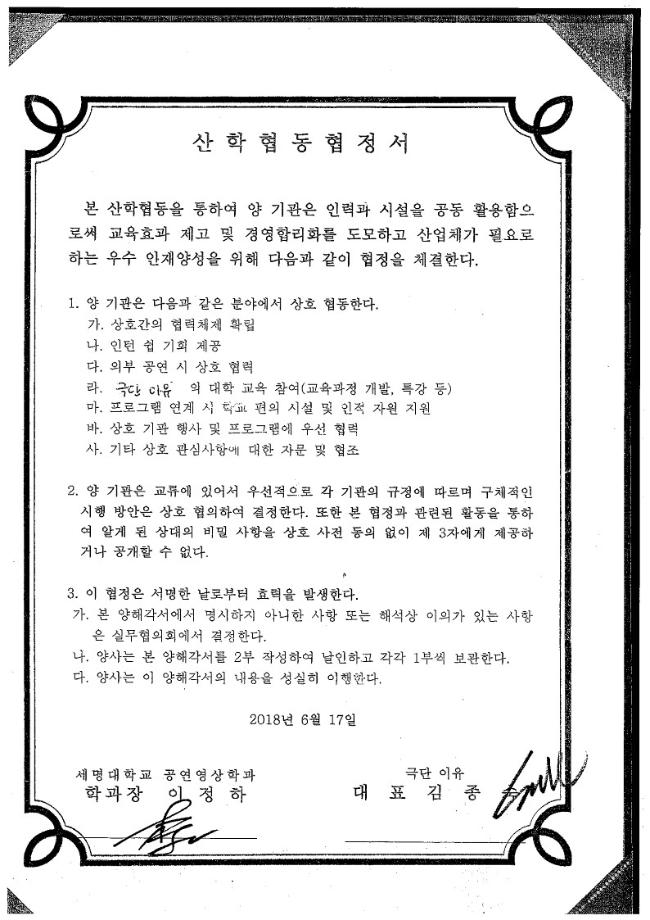 산학협동협정서
본 산학협동을 통하여 양 기관은 인력과 시설을 공동 활용함으
로써 교육효과 제고 및 경영합리화를 도모하고 산업체가 필요로
하는 우수 인재양성을 위해 다음과 같이 협정을 체결한다.
1. 양 기관은 다음과 같은 분야에서 상호 협동한다.
가. 상호간의 협력체제 확립
나. 인턴 쉽 기회 제공
다. 외부 공연 시 상호 협력
라. 극단 이유 의 대학 교육 참여(교육과정 개발, 특강 등)
마. 프로그램 연계 시 학교 편의 시설 및 인적 자원 지원
바. 상호 기관 행사 및 프로그램에 우선 협력
사. 기타 상호 관심사항에 대한 자문 및 협조
2. 양 기관은 교류에 있어서 우선적으로 각 기관의 규정에 따르며 구체적인
시행 방안은 상호 협의하여 결정한다. 또한 본 협정과 관련된 활동을 통하
여 알게 된 상대의 비밀 사항을 상호 사전 동의 없이 제 3자에게 제공하
거나 공개할 수 없다.
3. 이 협정은 서명한 날로부터 효력을 발생한다.
가. 본 양해각서에서 명시하지 아니한 사항 또는 해석상 이의가 있는 사항
은 실무협의회에서 결정한다.
나. 양사는 본 양해각서를 2부 작성하여 날인하고 각각 1부씩 보관한다.
다. 양사는 이 양해각서의 내용을 성실히 이행한다.
2018년 6월 17일
세명대학교 공연영상학과
학과장 이정하
극단 이유
대 표 김 종